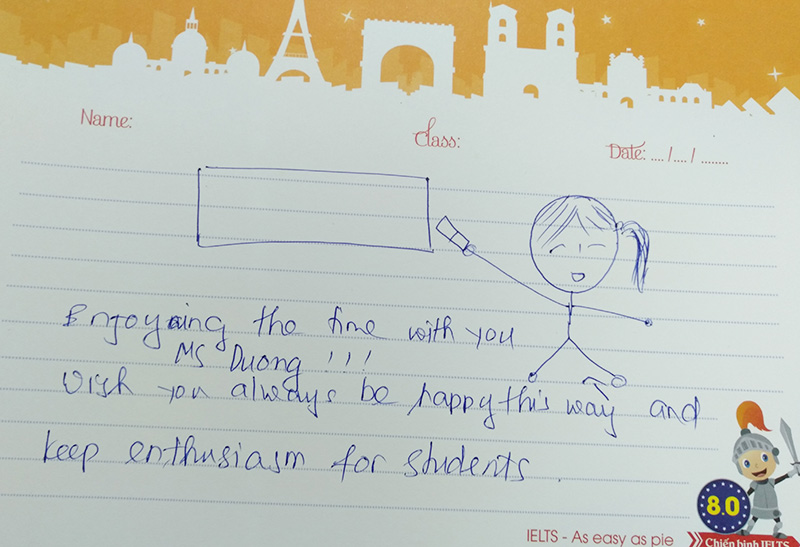 Name:
Class:
Date: ..../..../ ........
Enjoyaing the time with you
MS Duong !!!
Wish you always be happy this way and
keep enthusiasm for students.
8.0
IELTS - As easy as pie
Chiến binh IELTS